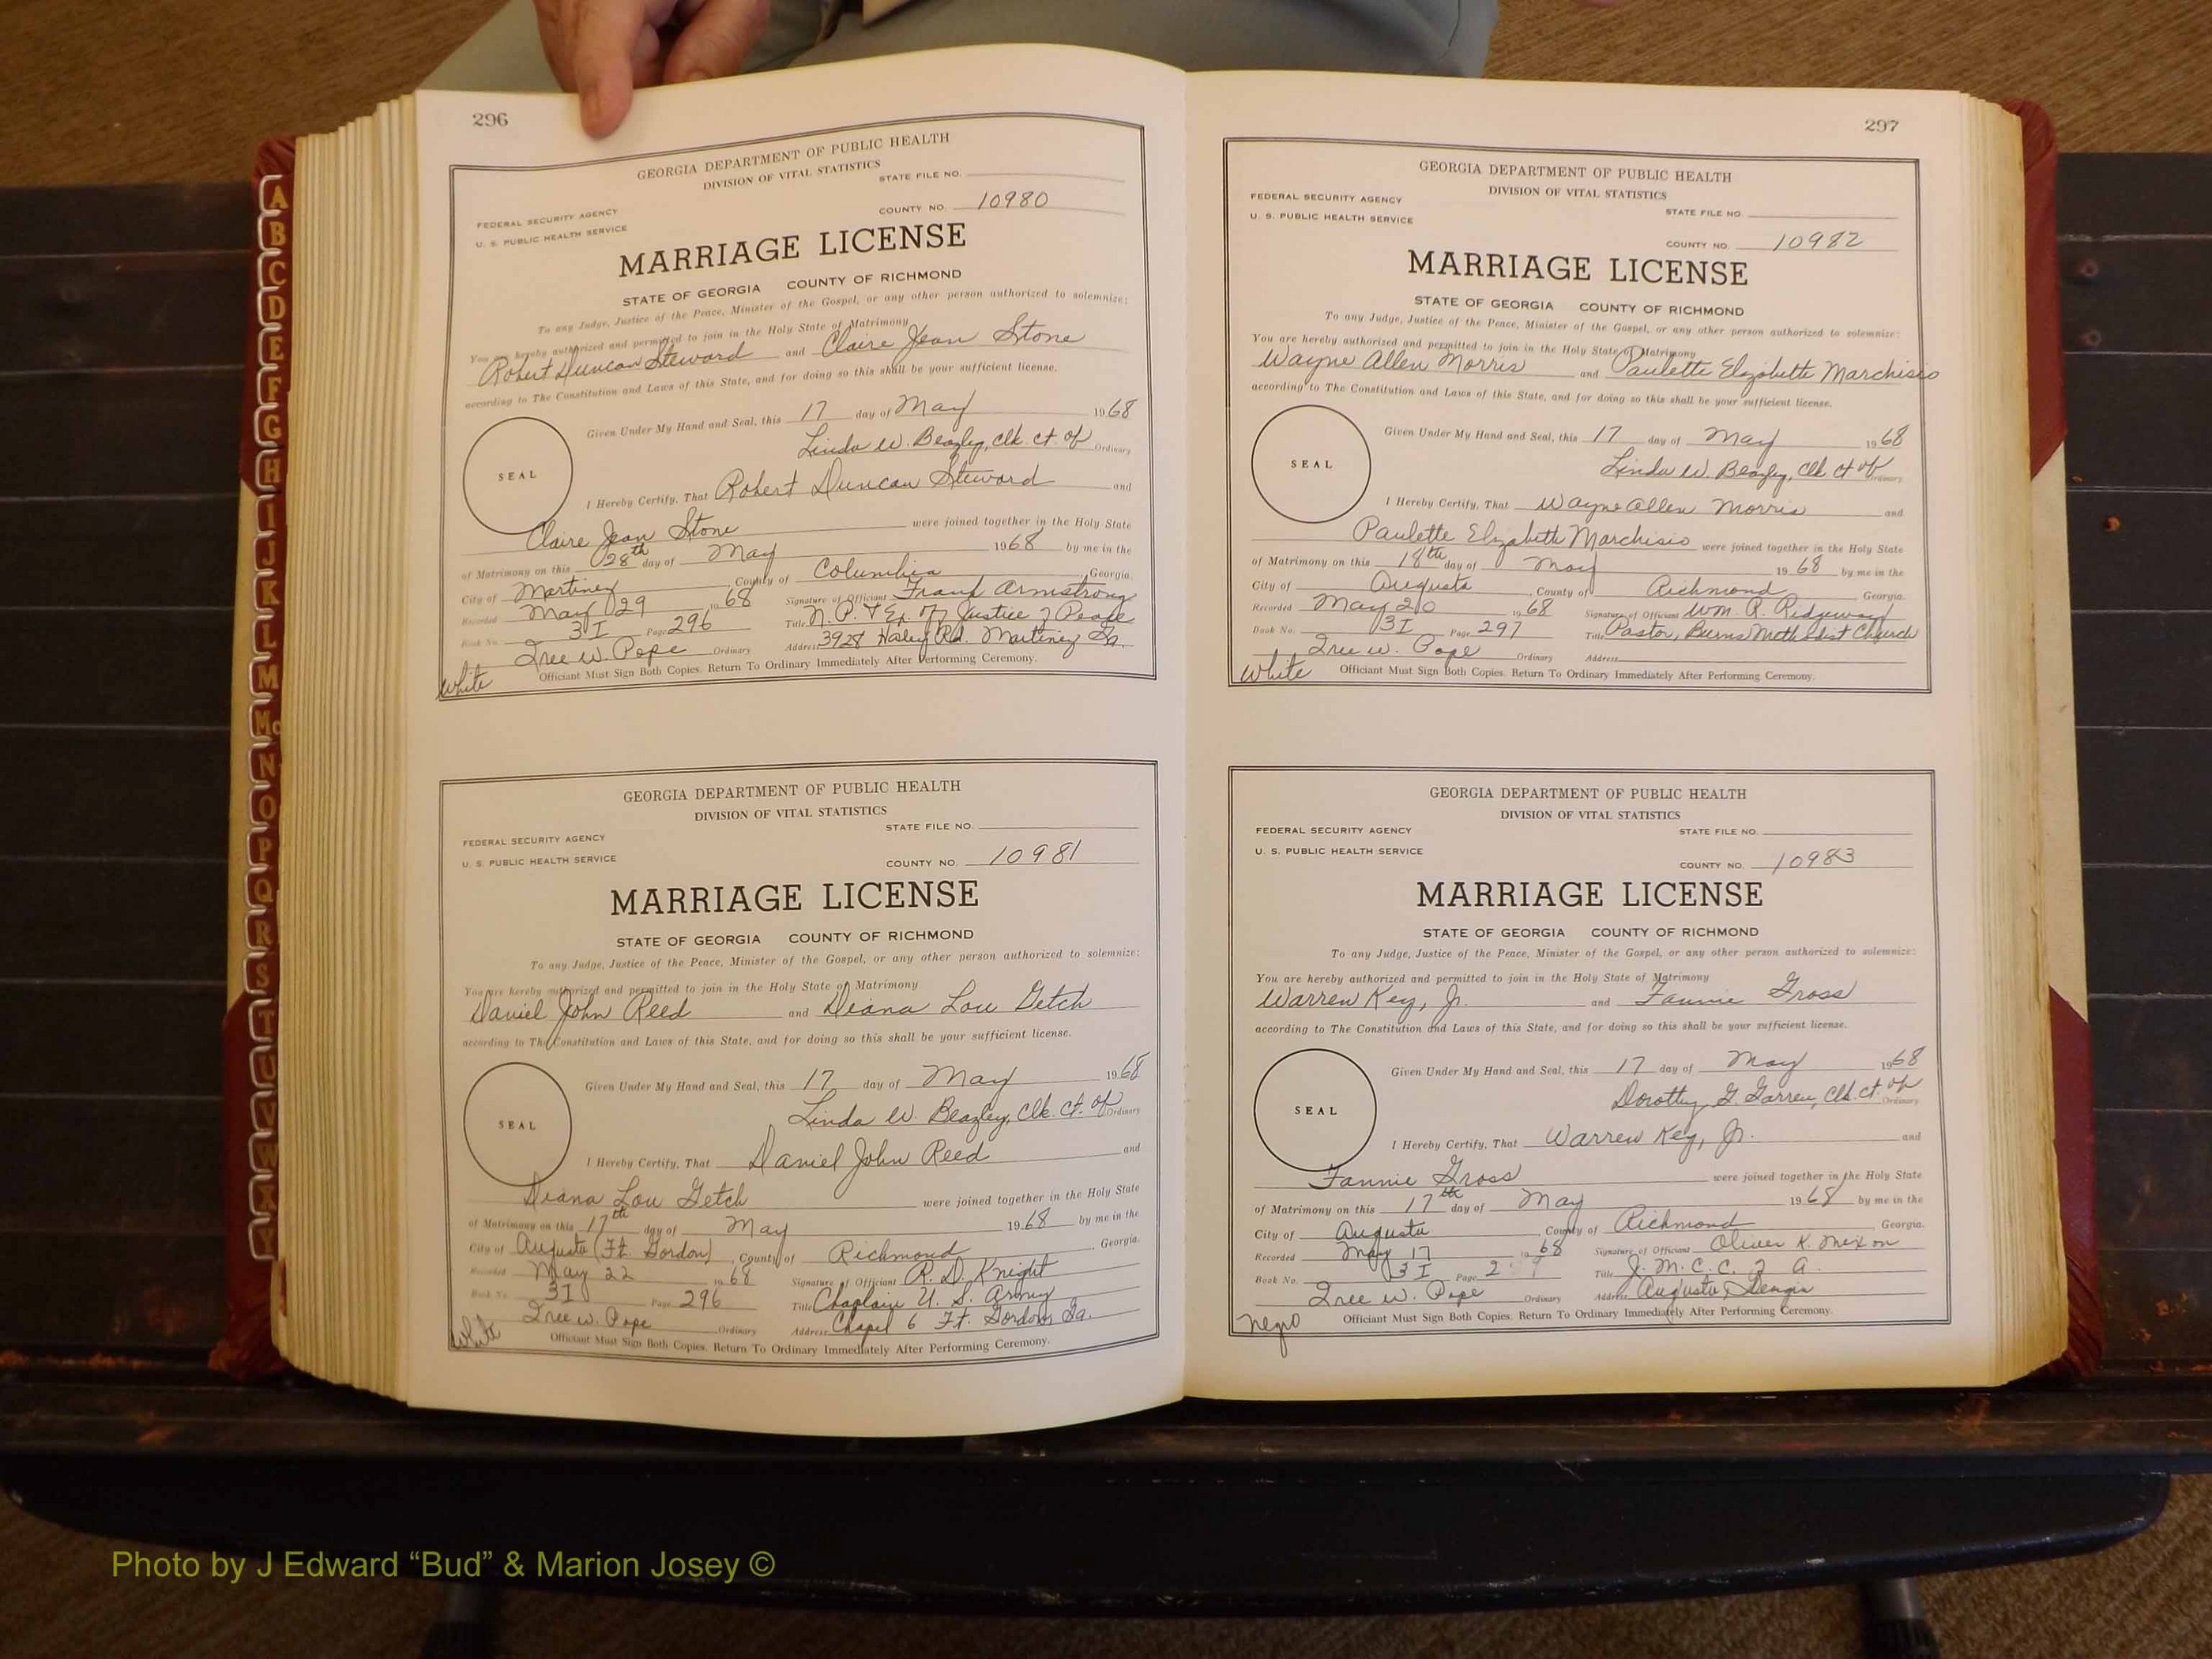 296
GEORGIA DEPARTMENT OF PUBLIC HEALTH
DIVISION OF VITAL STATISTICS
STATE FILE NO.
FEDERAL SECURITY AGENCY
COUNTY NO. 10980
U. S. PUBLIC HEALTH SERVICE
MARRIAGE LICENSE
STATE OF GEORGIA COUNTY OF RICHMOND
To any Judge, Justice of the Peace, Minister of the Gospel, or any other person authorized to solemnize:
You are hereby authorized and permitted to join in the Holy State of Matrimony
Robert Duncan Steward and Claire Jean Stone
according to The Constitution and Laws of this State, and for doing so this shall be your sufficient license.
Given Under My Hand and Seal, this 17 day of May 1968
Linda W. Beazley, Clk. Ct. of Ordinary
SEAL
I Hereby Certify, That Robert Duncan Steward and
Claire Jean Stone were joined together in the Holy State
of Matrimony on this 28th day of May 1968 by me in the
City of Martinez, County of Columbia, Georgia.
Recorded May 29 1968 Signature of Officiant Frank Armstrong
Book No. 3I Page 296 Title N. P. & Ex. Off. Justice of Peace
Tree W. Pope Ordinary Address 3928 Haley Rd. Martinez Ga.
White Officiant Must Sign Both Copies. Return To Ordinary Immediately After Performing Ceremony.
GEORGIA DEPARTMENT OF PUBLIC HEALTH
DIVISION OF VITAL STATISTICS
STATE FILE NO.
FEDERAL SECURITY AGENCY
U. S. PUBLIC HEALTH SERVICE
COUNTY NO. 10981
MARRIAGE LICENSE
STATE OF GEORGIA COUNTY OF RICHMOND
To any Judge, Justice of the Peace, Minister of the Gospel, or any other person authorized to solemnize:
You are hereby authorized and permitted to join in the Holy State of Matrimony
Daniel John Reed and Diana Lou Getch
according to The Constitution and Laws of this State, and for doing so this shall be your sufficient license.
Given Under My Hand and Seal, this 17 day of May 1968
Linda W. Beazley, Clk. Ct. of Ordinary
SEAL
I Hereby Certify, That Daniel John Reed and
Diana Lou Getch were joined together in the Holy State
of Matrimony on this 17th day of May 1968 by me in the
City of Augusta (Ft. Gordon), County of Richmond, Georgia.
Recorded May 22 1968 Signature of Officiant R. D. Knight
Book No. 3I Page 296 Title Chaplain U. S. Army
Tree W. Pope Ordinary Address Chapel 6 Ft. Gordon, Ga.
White Officiant Must Sign Both Copies. Return To Ordinary Immediately After Performing Ceremony.
297
GEORGIA DEPARTMENT OF PUBLIC HEALTH
DIVISION OF VITAL STATISTICS
FEDERAL SECURITY AGENCY
STATE FILE NO.
U. S. PUBLIC HEALTH SERVICE
COUNTY NO. 10982
MARRIAGE LICENSE
STATE OF GEORGIA COUNTY OF RICHMOND
To any Judge, Justice of the Peace, Minister of the Gospel, or any other person authorized to solemnize:
You are hereby authorized and permitted to join in the Holy State of Matrimony
Wayne Allen Morris and Paulette Elizabeth Marchisio
according to The Constitution and Laws of this State, and for doing so this shall be your sufficient license.
Given Under My Hand and Seal, this 17 day of May 1968
Linda W. Beazley, Clk Ct of Ordinary
SEAL
I Hereby Certify, That Wayne Allen Morris and
Paulette Elizabeth Marchisio were joined together in the Holy State
of Matrimony on this 18th day of May 1968 by me in the
City of Augusta, County of Richmond, Georgia.
Recorded May 20 1968 Signature of Officiant Wm. R. Ridgeway
Book No. 3I Page 297 Title Pastor, Burns Methodist Church
Tree W. Pope Ordinary Address
White Officiant Must Sign Both Copies. Return To Ordinary Immediately After Performing Ceremony.
GEORGIA DEPARTMENT OF PUBLIC HEALTH
DIVISION OF VITAL STATISTICS
FEDERAL SECURITY AGENCY
STATE FILE NO.
U. S. PUBLIC HEALTH SERVICE
COUNTY NO. 10983
MARRIAGE LICENSE
STATE OF GEORGIA COUNTY OF RICHMOND
To any Judge, Justice of the Peace, Minister of the Gospel, or any other person authorized to solemnize:
You are hereby authorized and permitted to join in the Holy State of Matrimony
Warren Key, Jr. and Fannie Gross
according to The Constitution and Laws of this State, and for doing so this shall be your sufficient license.
Given Under My Hand and Seal, this 17 day of May 1968
Dorothy G. Farren, Clk. Ct. of Ordinary
SEAL
I Hereby Certify, That Warren Key, Jr. and
Fannie Gross were joined together in the Holy State
of Matrimony on this 17th day of May 1968 by me in the
City of Augusta, County of Richmond, Georgia.
Recorded May 17 1968 Signature of Officiant Oliver K. Mixon
Book No. 3I Page Title J. M. C. C. 2 A.
Tree W. Pope Ordinary Address Augusta, Georgia
negro Officiant Must Sign Both Copies. Return To Ordinary Immediately After Performing Ceremony.
A
B
C
D
E
F
G
H
I
J
K
L
M
Mc
N
O
P
Q
R
S
T
U
V
W
X
Y
Photo by J Edward “Bud” & Marion Josey ©